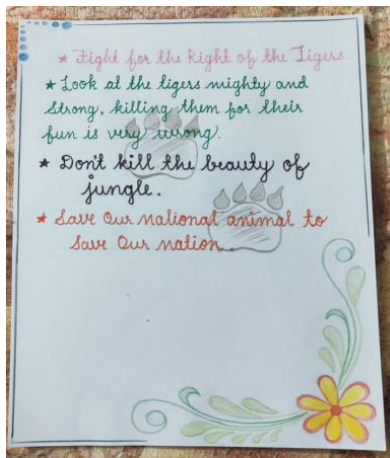 ★ Fight for the Right of the Tigers.
★ Look at the tigers mighty and
strong, killing them for their
fun is very wrong.
★ Don't kill the beauty of
jungle.
★ Save Our national animal to
Save Our nation.